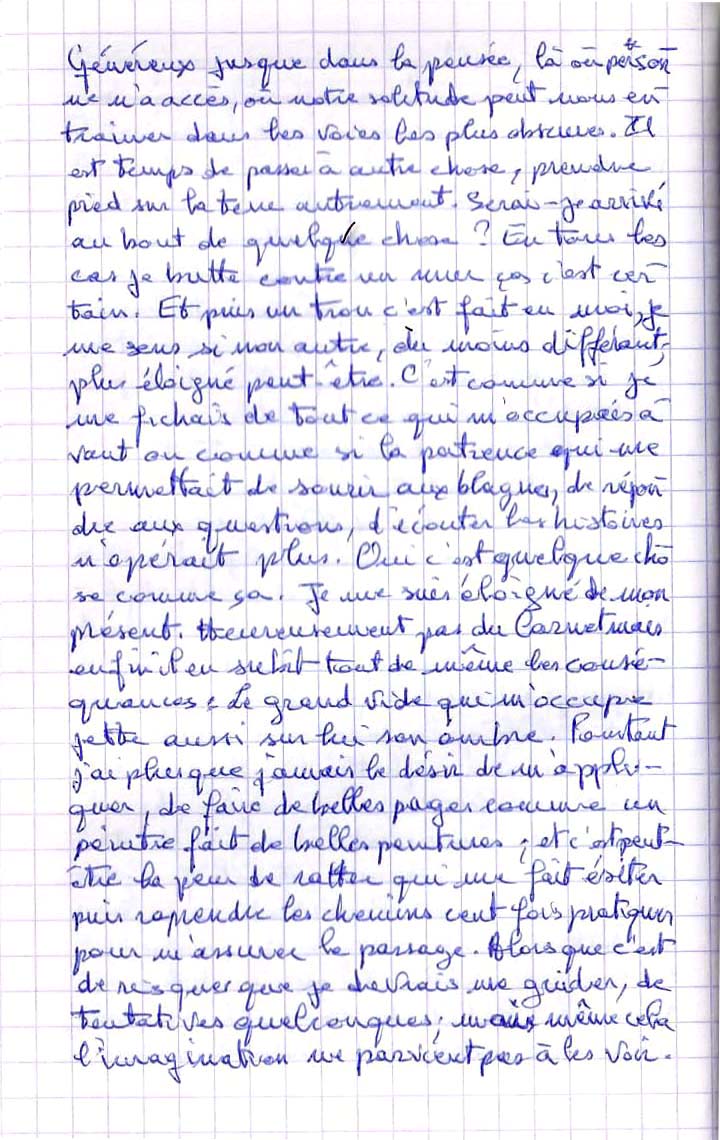 Généreux jusque dans la pensée, là où person
ne n'a accès, où notre solitude peut nous en
trainer dans les voies les plus obscures. Il
est temps de passer à autre chose, prendre
pied sur la terre autrement. Serai-je arrivé
au bout de quelque chose ? En tous les
cas je butte contre un mur ça c'est cer
tain. Et puis un trou c'est fait en moi, je
me sens si non autre, du moins différent,
plus éloigné peut-être. C'est comme si je
me fichais de tout ce qui m'occupais a
vant ou comme si la patience qui me
permettait de sourir aux blagues, de répon
dre aux questions, d'écouter les histoires
n'opérait plus. Oui c'est quelque cho
se comme ça. Je me suis éloigné de mon
présent. Heureusement pas du Carnet mais
enfin il en subit tout de même les consé-
quances : Le grand vide qui m'occupe
jette aussi sur lui son ombre. Pourtant
j'ai plus que jamais le désir de m'appli-
quer, de faire de belles pages comme un
peintre fait de belles peintures ; et c'est peut-
être la peur de ratter qui me fait ésiter
puis reprendre les chemins cent fois pratiquer
pour m'assurer le passage. Alors que c'est
de risquer que je devrais me guider, de
tentatives quelconques ; mais même cela
l'imagination ne parvient pas à les voir.